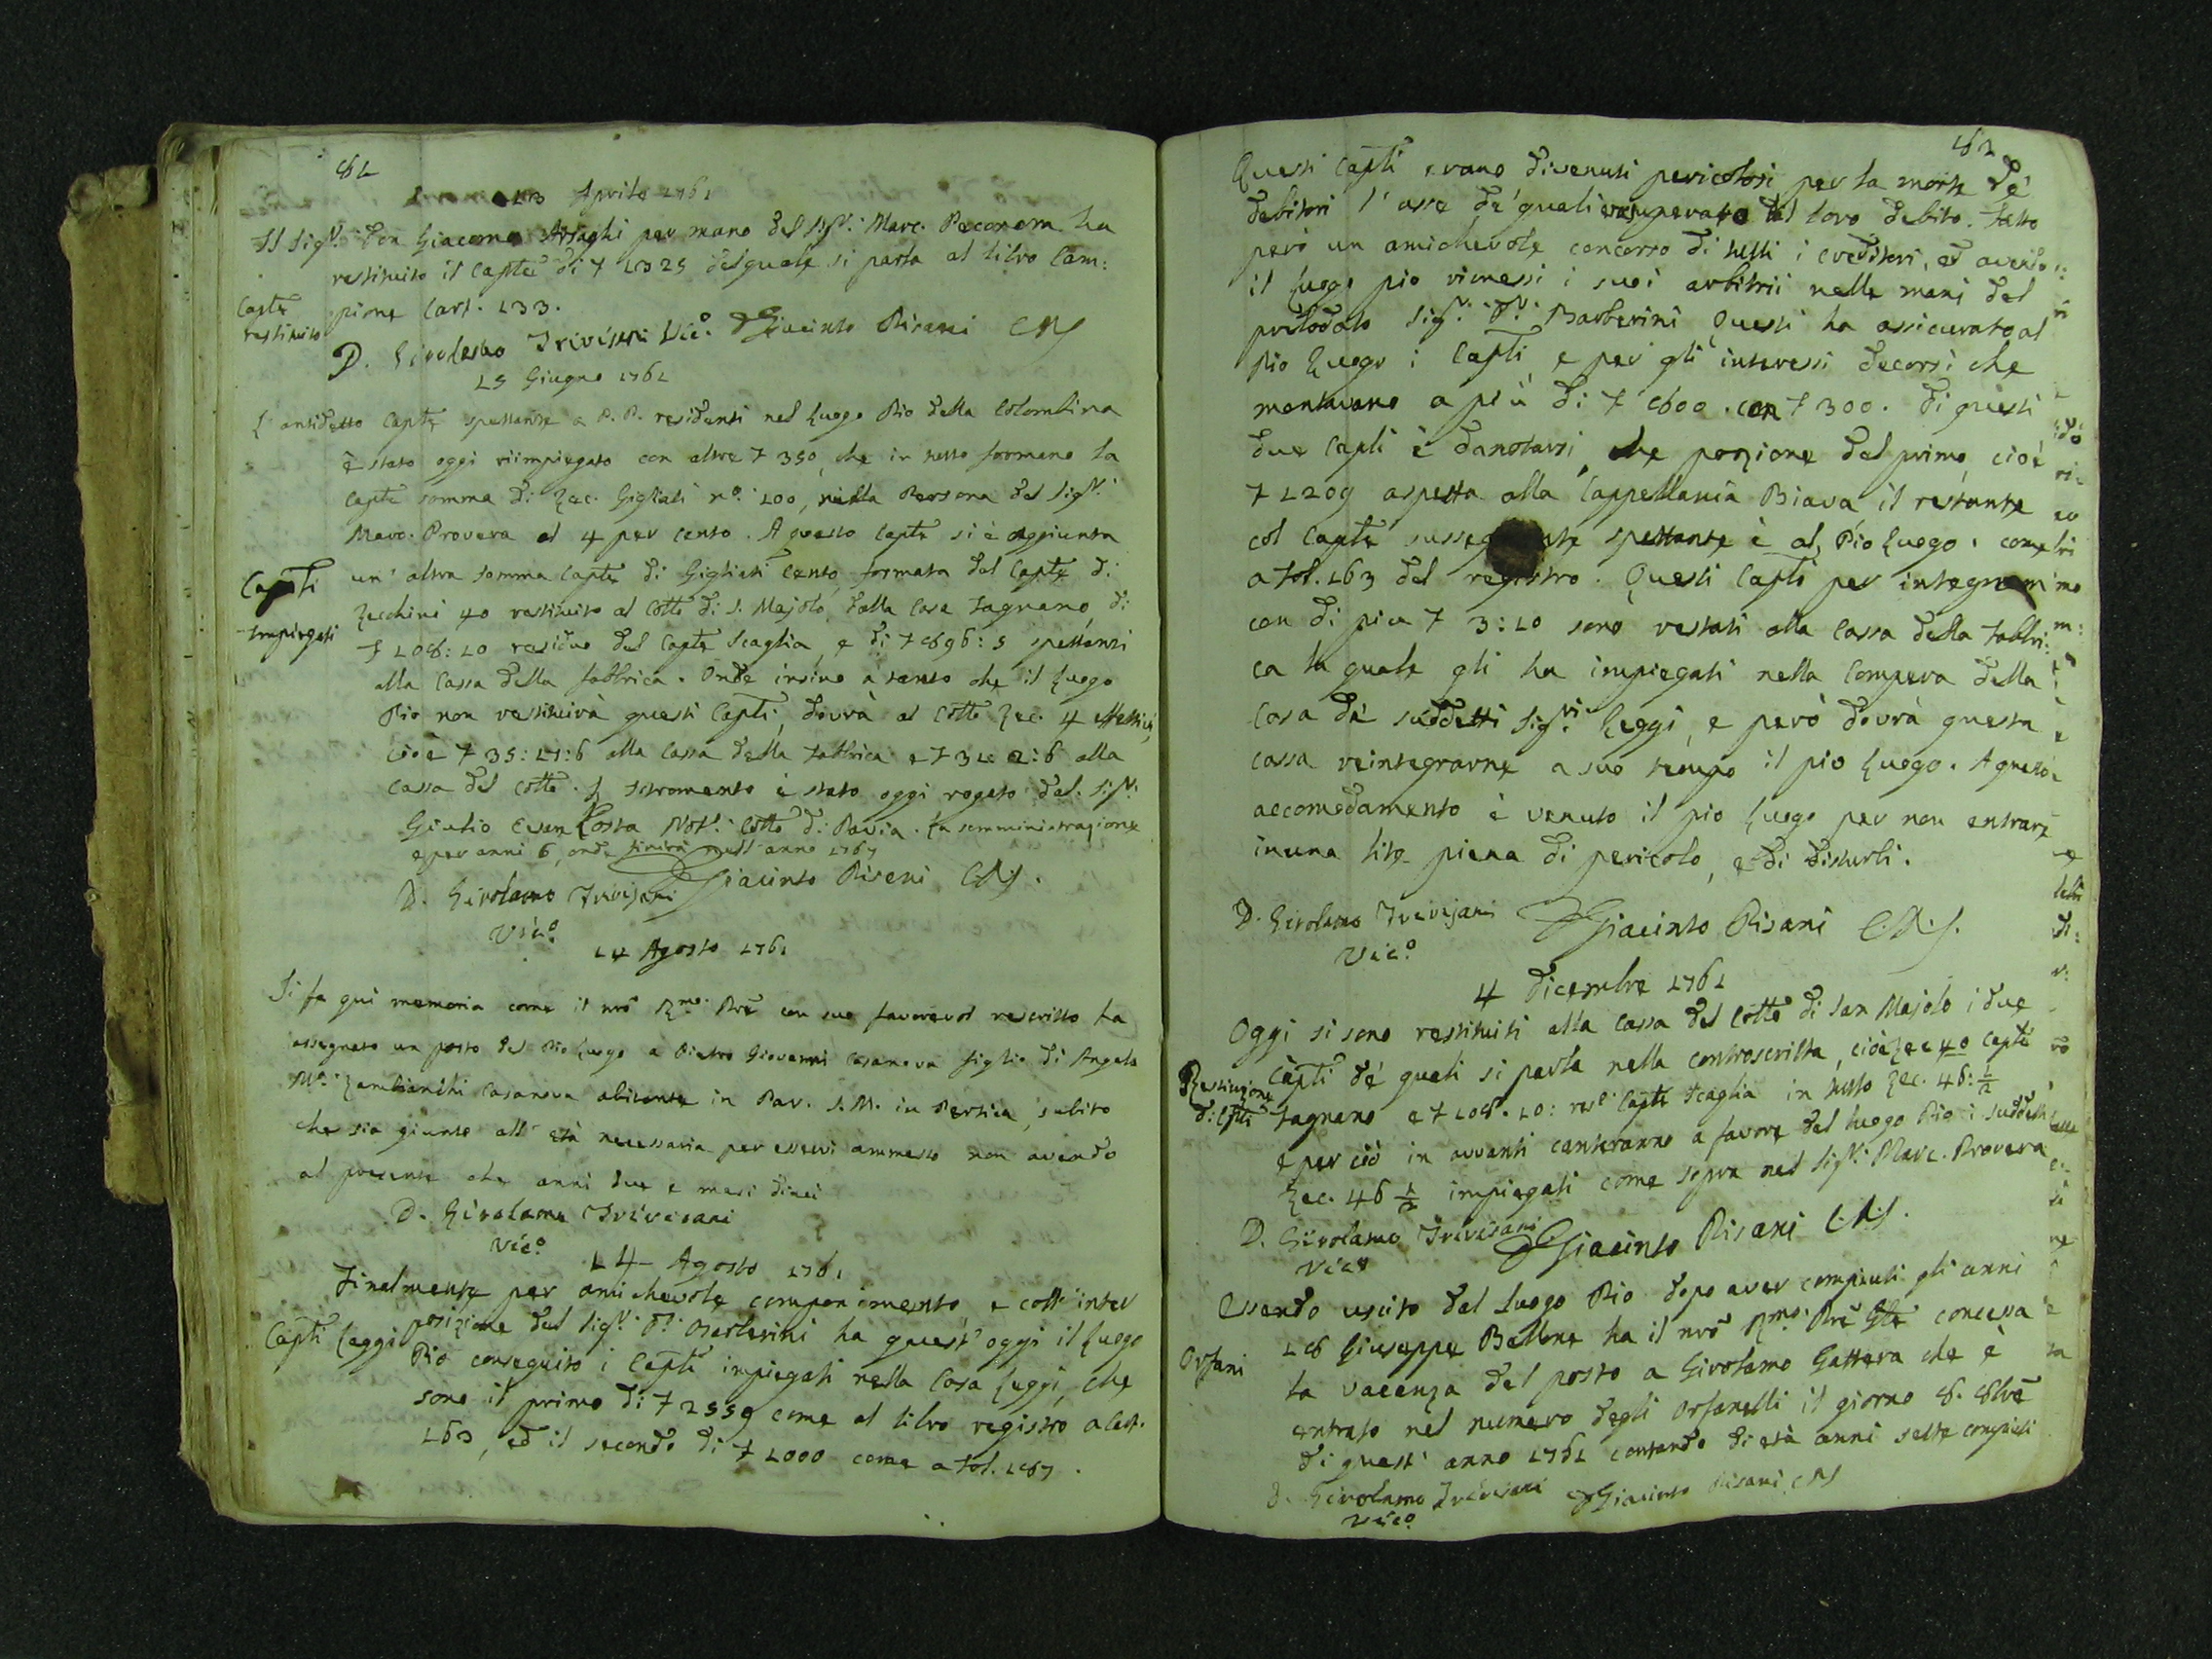 81
23 Aprile 1761
Il Sig.r Don Giacomo Arsaghi per mano del Sig.r Marc. Pecorara ha
restituito il Capte di f 1325 del quale si parla al libro Cam:
Capte
restituito
pione Cart. 133.
D. Girolamo Trivisani Vic.o Giacinto Pisani CRS
15 Giugno 1761
L'antidetto Capte spettante a P. P. residenti nel Luogo Pio della Colombina
è stato oggi riimpiegato con altre f 350, che in tutto formano la
Capte somma di Zec. Gigliati n.o 100, nella Persona del Sig.r
Marc. Provera al 4 per cento. A questo Capte si è aggiunta
Capti
Impiegati
un' altra somma Capte di Gigliati Cento, formata dal Capte di
Zecchini 40 restituito al Colle di S. Majolo, dalla Casa Fagnano, di
f 108:10 residuo del Capte Scaglia, e di f 896:5 spettanti
alla Cassa della fabbrica. Onde insino a tanto che il Luogo
Pio non restituirà questi Capti, dovrà al Colle Zec. 4 effettivi,
cioè f 35:17:6 alla Cassa della fabbrica e f 31: 2:6 alla
Cassa del Colle. L'Istromento è stato oggi rogato dal Sig.r
Giulio Cesar Costa Not.o Colle di Pavia. La somministrazione
è per anni 6, onde finirà nell'anno 1767
D. Girolamo Trivisani Giacinto Pisani CRS.
Vic.o
14 Agosto 1761
Si fa qui memoria come il nro R.mo Pre con suo favorevol rescritto ha
assegnato un posto del Pio Luogo a Pietro Giovanni Casanova figlio di Angela
M.a Zambianchi Casanova abitante in Par. S. M. in Pertica, subito
che sia giunto all' età necessaria per esservi ammesso non avendo
al presente che anni due e mesi dieci
D. Girolamo Trivisani
Vic.o
14 Agosto 1761
Finalmente per amichevole componimento e coll' inter
Capti Leggi
posizione del Sig.r D.r Barberini ha quest'oggi il Luogo
Pio conseguito i Capti impiegati nella Casa Leggi, che
sono il primo di f 2559 come al libro registro a Cart.
163, ed il secondo di f 1000 come a fol. 167.
82
Questi Capti erano divenuti pericolosi per la morte de'
debitori l'asse de' quali era superato dal loro debito. Fatto
però un amichevole concorso di tutti i creditori, ed avendo
il Luogo pio rimessi i suoi arbitrii nelle mani del
prelodato Sig.r D.r Barberini Questi ha assicurato al
Pio Luogo i Capti, e per gli interessi decorsi che
montavano a più di f 600. con f 300. Di questi
due Capti è da notarsi, che porzione del primo, cioè
f 1209 aspetta alla Cappellania Biava il restante
col Capte susseg nte spettante è al Pio Luogo. come
a fol. 163 del registro. Questi Capti per integrum
con di piu f 3:10 sono restati alla Cassa della Fabbri:
ca la quale gli ha impiegati nella Compera della
Casa de' suddetti Sig.ri Leggi, e però dovrà questa
cassa reintegrarne a suo tempo il pio Luogo. A questo
accomodamento è venuto il pio Luogo per non entrare
in una lite piena di pericolo, e di disturbi.
D. Girolamo Trivisani Giacinto Pisani C.R.S.
Vic.o
4 Dicembre 1761
Oggi si sono restituiti alla Cassa del Colle di San Majolo i due
Restituzione
di Capti
Capti de' quali si parla nella controscritta, cioè Zec 40 Capte
Fagnano e f 108.10: res.o Capte Scaglia in tutto Zec. 46:1/2
e per ciò in avvanti canteranno a favore del Luogo Pio i suddetti
Zec. 46 1/2 impiegati come sopra nel Sig.r Marc. Provera
D. Girolamo Trivisani Giacinto Pisani C.R.S.
Vic.o
Essendo uscito dal Luogo Pio dopo aver compiuti gli anni
Orfani
18 Giuseppe Bellone ha il nro R.mo Pre Gle concessa
la vacanza del posto a Girolamo Gattera che è
entrato nel numero degli Orfanelli il giorno 8. 8bre
di quest' anno 1761 contando di età anni sette compiuti
D. Girolamo Trivisani Giacinto Pisani CRS
Vic.o